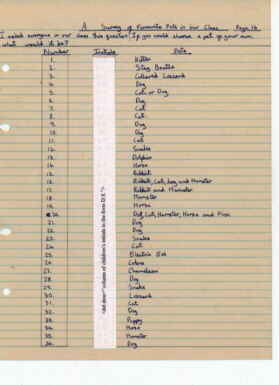 A Survey of Favourite Pets in our Class Page 16
I asked everyone in our class this question. If you could choose a pet of your own
what would it be?
Number Initials Pets
1. Kitten
2. Stag Beetle
3. Collared Lizzard
4. Dog
5. Cat or Dog
6. Dog
7. Cat
8. Cat
9. Dog
10. Dog
11. Cat
12. Snake
13. Dolphin
14. Horse
15. Rabbit
Rabbit, Cat, Dog and Hamster
Rabbit and Hamster
18. Hamster
19. Horse
20. Dog, Cat, Hamster, Horse and
21. Dog
22. Dog
23. Snake
24. Cat
25. Electric Eel
26. Cobra
27. Chameleon
28. Dog
29. Snake
30. Lizzard
31. Cat
32. Dog
33. Puppy
34. Horse
35. Hamster
36. Dog
column of children's initials in the form D.E.